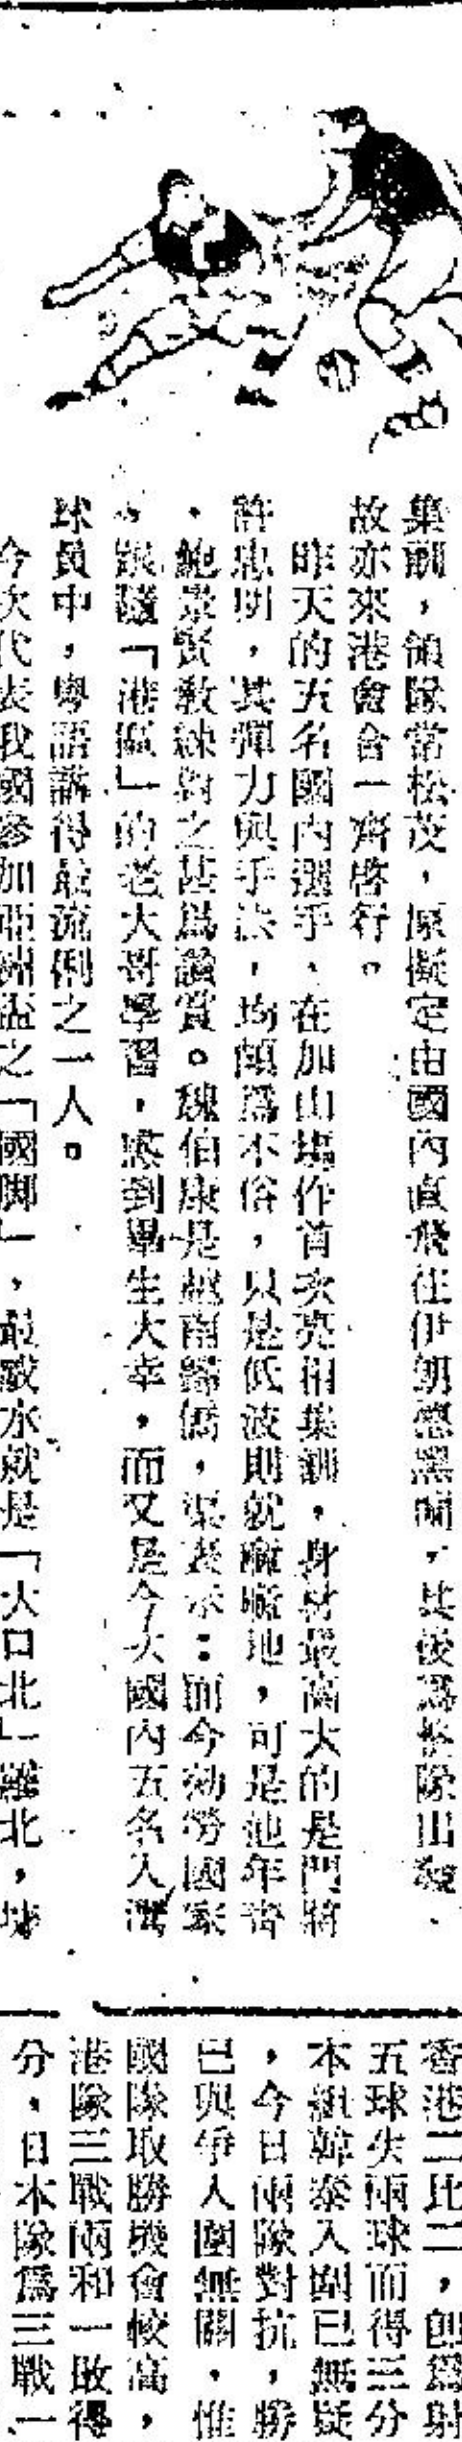 集訓，領隊常松茂，原擬定由國內直飛往伊朗德黑蘭，其後爲整隊出發
故亦來港會合一齊啓行。
昨天的五名國內選手，在加山塲作首次亮相集訓，身材最高大的是門將
許忠明，其彈力與手法，均頗爲不俗，只是低波則就論論地，可是他年靑
，鮑景賢敎練對之甚爲讚賞。魏伯康是越南歸僑，渠表示：而今効勞國家
，跟隨「港區」的老大哥學習，感到畢生大幸，而又是今次國內五名入選
球員中，粵語講得最流俐之一人。
今次代表我國參加亞洲盃之「國脚」，最醎水就是「大口北」羅北，
香港二比二，卽爲射
五球失兩球而得三分
本組韓泰入圍已無疑
，今日兩隊對抗，勝
巳與爭入圍無關，惟
國隊取勝機會較高，
港隊三戰兩和一敗得
分，日本隊爲三戰一